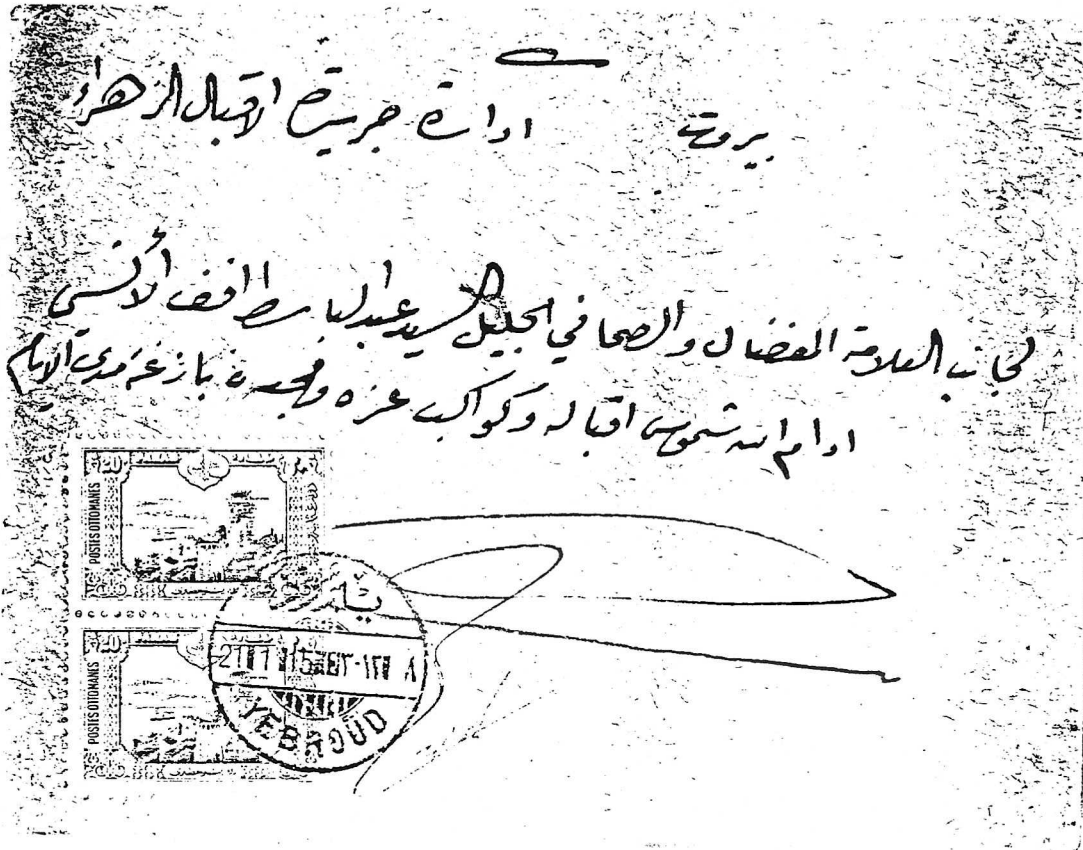 بيروت ادارة جريدة الاقبال الزهراء
لجانب العلامة المفضال والصحافي الجليل السيد عبدالباسط افندي الأنسي
ادام الله شموس اقباله وكواكب عزه ومجده بازغة مدى الايام
20
POSTES OTTOMANES
20
POSTES OTTOMANES
YEBROUD